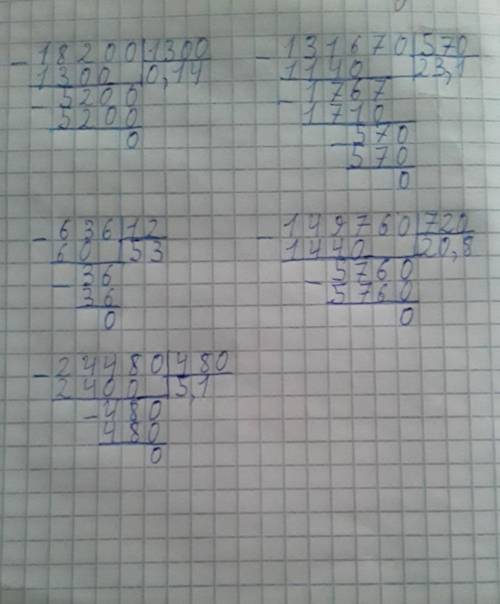 - 18200 | 1300
1300 | 0,14
- 5200
5200
0
- 131670 | 570
1140 | 23,1
- 1767
1710
- 570
570
0
- 636 | 12
60 | 53
- 36
36
0
- 149760 | 720
1440 | 20,8
- 5760
5760
0
- 24480 | 480
2400 | 5,1
- 480
480
0